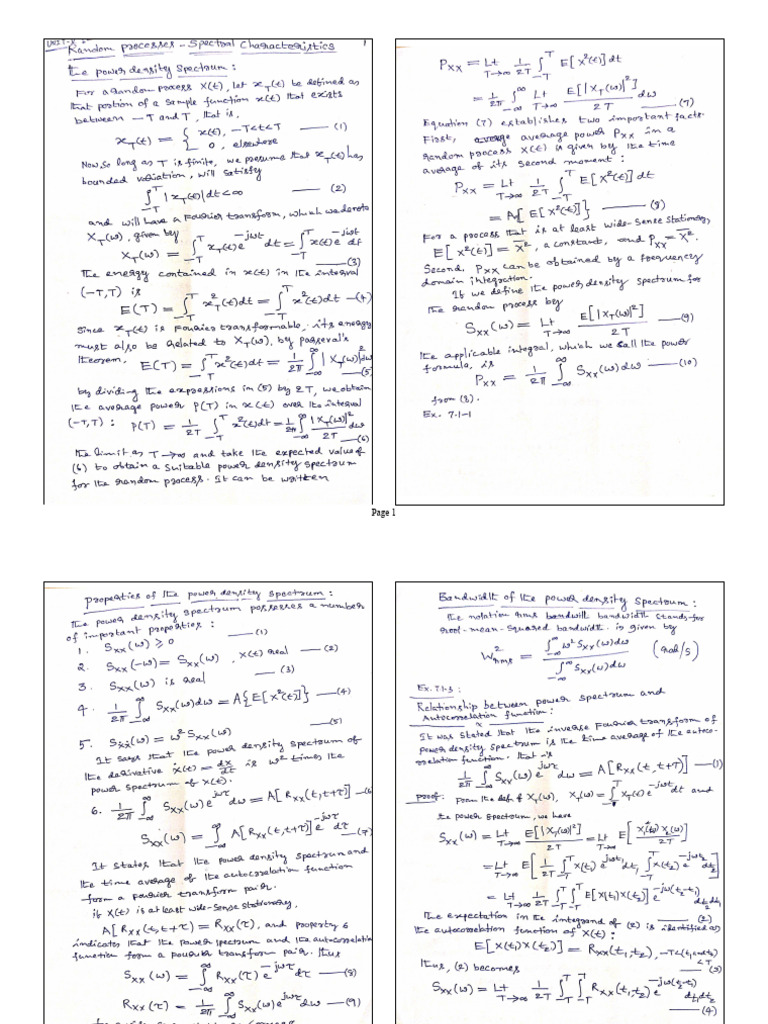 UNIT-V
Random processes - Spectral Characteristics 1
The power density Spectrum :
For a Random process X(t), let x_T(t) be defined as
that portion of a sample function x(t) that exists
between -T and T, that is,
x_T(t) = { x(t), -T<t<T —— (1)
0, elsewhere
Now, so long as T is finite, we presume that x_T(t) has
bounded variation, will satisfy
∫_{-T}^{T} |x_T(t)|dt < ∞ —— (2)
and will have a Fourier transform, which we denote
X_T(ω), given by
X_T(ω) = ∫_{-T}^{T} x_T(t) e^{-jωt} dt = ∫_{-T}^{T} x(t) e^{-jωt} dt
—— (3)
The energy contained in x(t) in the interval
(-T,T) is
E(T) = ∫_{-T}^{T} x_T^2(t)dt = ∫_{-T}^{T} x^2(t)dt —(4)
Since x_T(t) is Fourier transformable, its energy
must also be related to X_T(ω), by parseval's
theorem,
E(T) = ∫_{-T}^{T} x^2(t)dt = 1/2π ∫_{-∞}^{∞} |X_T(ω)|^2 dω
—— (5)
by dividing the expressions in (5) by 2T, we obtain
the average power P(T) in x(t) over the interval
(-T,T) : P(T) = 1/2T ∫_{-T}^{T} x^2(t)dt = 1/2π ∫_{-∞}^{∞} |X_T(ω)|^2/2T dω
—— (6)
the limit as T→∞ and take the expected value of
(6) to obtain a suitable power density spectrum
for the random process. It can be written
P_XX = Lt_{T→∞} 1/2T ∫_{-T}^{T} E[X^2(t)]dt
= 1/2π ∫_{-∞}^{∞} Lt_{T→∞} E[|X_T(ω)|^2]/2T dω
—— (7)
Equation (7) establishes two important facts.
First, average power P_XX in a
random process X(t) is given by the time
average of its second moment :
P_XX = Lt_{T→∞} 1/2T ∫_{-T}^{T} E[X^2(t)]dt
= A{E[X^2(t)]} —— (8)
For a process that is at least wide-sense stationary,
E[X^2(t)] = X̄^2, a constant, and P_XX = X̄^2.
Second, P_XX can be obtained by a frequency
domain integration.
If we define the power density spectrum for
the random process by
S_XX(ω) = Lt_{T→∞} E[|X_T(ω)|^2]/2T —— (9)
the applicable integral, which we call the power
formula, is
P_XX = 1/2π ∫_{-∞}^{∞} S_XX(ω)dω —— (10)
from (8).
Ex. 7.1-1
Page 1
properties of the power density spectrum :
The power density spectrum possesses a number
of important properties :
1. S_XX(ω) ≥ 0 —— (1)
2. S_XX(-ω) = S_XX(ω), X(t) real —— (2)
3. S_XX(ω) is real —— (3)
4. 1/2π ∫_{-∞}^{∞} S_XX(ω)dω = A{E[X^2(t)]} —— (4)
—— (5)
5. S_ẊẊ(ω) = ω^2 S_XX(ω)
It says that the power density spectrum of
the derivative ẋ(t) = dx/dt is ω^2 times the
power spectrum of X(t).
6. 1/2π ∫_{-∞}^{∞} S_XX(ω) e^{jωτ} dω = A[R_XX(t,t+τ)] —(6
S_XX(ω) = ∫_{-∞}^{∞} A[R_XX(t,t+τ)] e^{-jωτ} dτ
—— (7)
It states that the power density spectrum and
the time average of the autocorrelation function
form a Fourier transform pair.
if X(t) is at least wide-sense stationary,
A[R_XX(t,t+τ)] = R_XX(τ), and property 6
indicates that the power spectrum and the autocorrelation
function form a Fourier transform pair. Thus
S_XX(ω) = ∫_{-∞}^{∞} R_XX(τ) e^{-jωτ} dτ —— (8)
R_XX(τ) = 1/2π ∫_{-∞}^{∞} S_XX(ω) e^{jωτ} dω —— (9)
Bandwidth of the power density spectrum :
The notation rms bandwidth stands for
root-mean-squared bandwidth. is given by
W_rms^2 = ∫_{-∞}^{∞} ω^2 S_XX(ω)dω / ∫_{-∞}^{∞} S_XX(ω)dω (rad/s)
Ex. 7.1-3 :
Relationship between power spectrum and
Autocorrelation function :
It was stated that the inverse Fourier transform of
power density spectrum is the time average of the autoco-
rrelation function. that is
1/2π ∫_{-∞}^{∞} S_XX(ω) e^{jωτ} dω = A[R_XX(t,t+τ)] —(1)
proof: from the def. of X_T(ω), X_T(ω) = ∫_{-T}^{T} x_T(t) e^{-jωt} dt and
the power spectrum, we have
S_XX(ω) = Lt_{T→∞} E[|X_T(ω)|^2]/2T = Lt_{T→∞} E[X_T^*(ω) X_T(ω)/2T]
= Lt_{T→∞} E[1/2T ∫_{-T}^{T} X(t_1) e^{jωt_1} dt_1 ∫_{-T}^{T} X(t_2) e^{-jωt_2} dt_2]
= Lt_{T→∞} 1/2T ∫_{-T}^{T} ∫_{-T}^{T} E[X(t_1)X(t_2)] e^{-jω(t_2-t_1)} dt_2 dt_1
—— (2)
The expectation in the integrand of (2) is identified as
the autocorrelation function of X(t) :
E[X(t_1)X(t_2)] = R_XX(t_1,t_2), -T<(t_1 and t_2)<T
—— (3)
thus, (2) becomes
S_XX(ω) = Lt_{T→∞} 1/2T ∫_{-T}^{T} ∫_{-T}^{T} R_XX(t_1,t_2) e^{-jω(t_2-t_1)} dt_1 dt_2
—— (4)